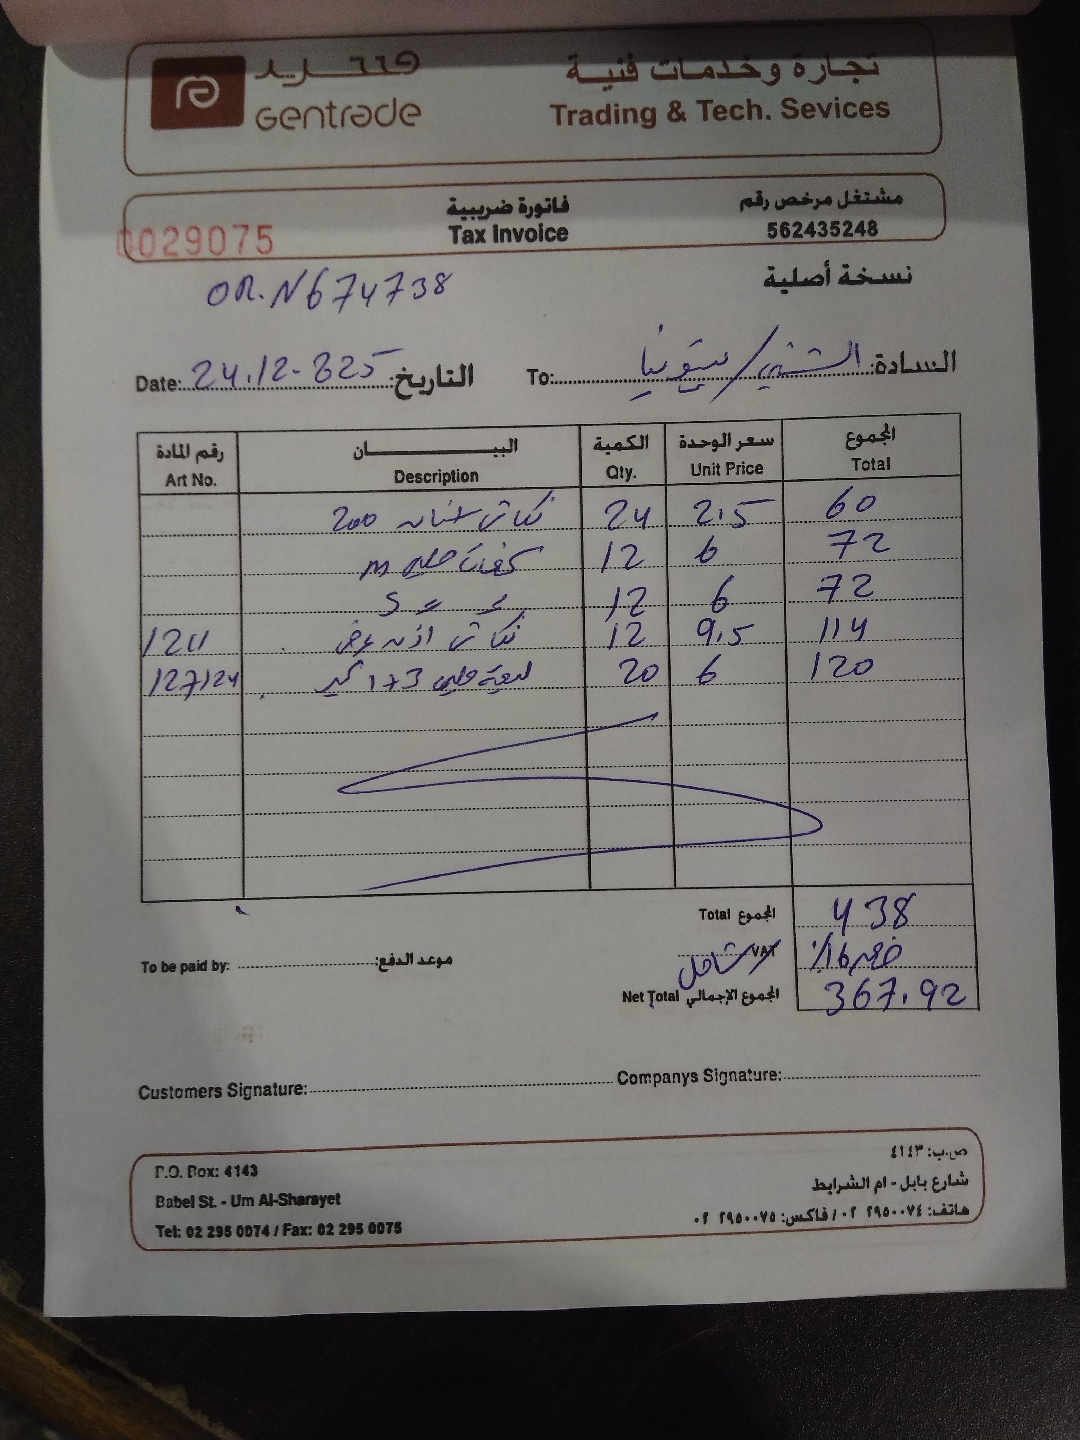 جنتريد
Gentrade
تجارة وخدمات فنية
Trading & Tech. Sevices
0029075
فاتورة ضريبية
Tax Invoice
مشتغل مرخص رقم
562435248
OR.N674738
نسخة أصلية
Date: 24.12.225 التاريخ:
To: السادة: الشني/
رقم المادة البيـــــــان الكمية سعر الوحدة المجموع
Art No. Description Qty. Unit Price Total
نكاش اسنان 200 24 2.5 60
كفات جلي m 12 6 72
= = S 12 6 72
1211 نكاش اذن عرض 12 9.5 114
127124 ليفة جلي 3+1 كبير 20 6 120
Total المجموع 438
VAT شامل خصم 16%
Net Total المجموع الإجمالي 367.92
To be paid by: موعد الدفع:
Customers Signature: Companys Signature:
P.O. Box: 4143
Babel St. - Um Al-Sharayet
Tel: 02 295 0074 / Fax: 02 295 0075
ص.ب: ٤١٤٣
شارع بابل - ام الشرايط
هاتف: ٢٩٥٠٠٧٤ ٠٢ / فاكس: ٢٩٥٠٠٧٥ ٠٢